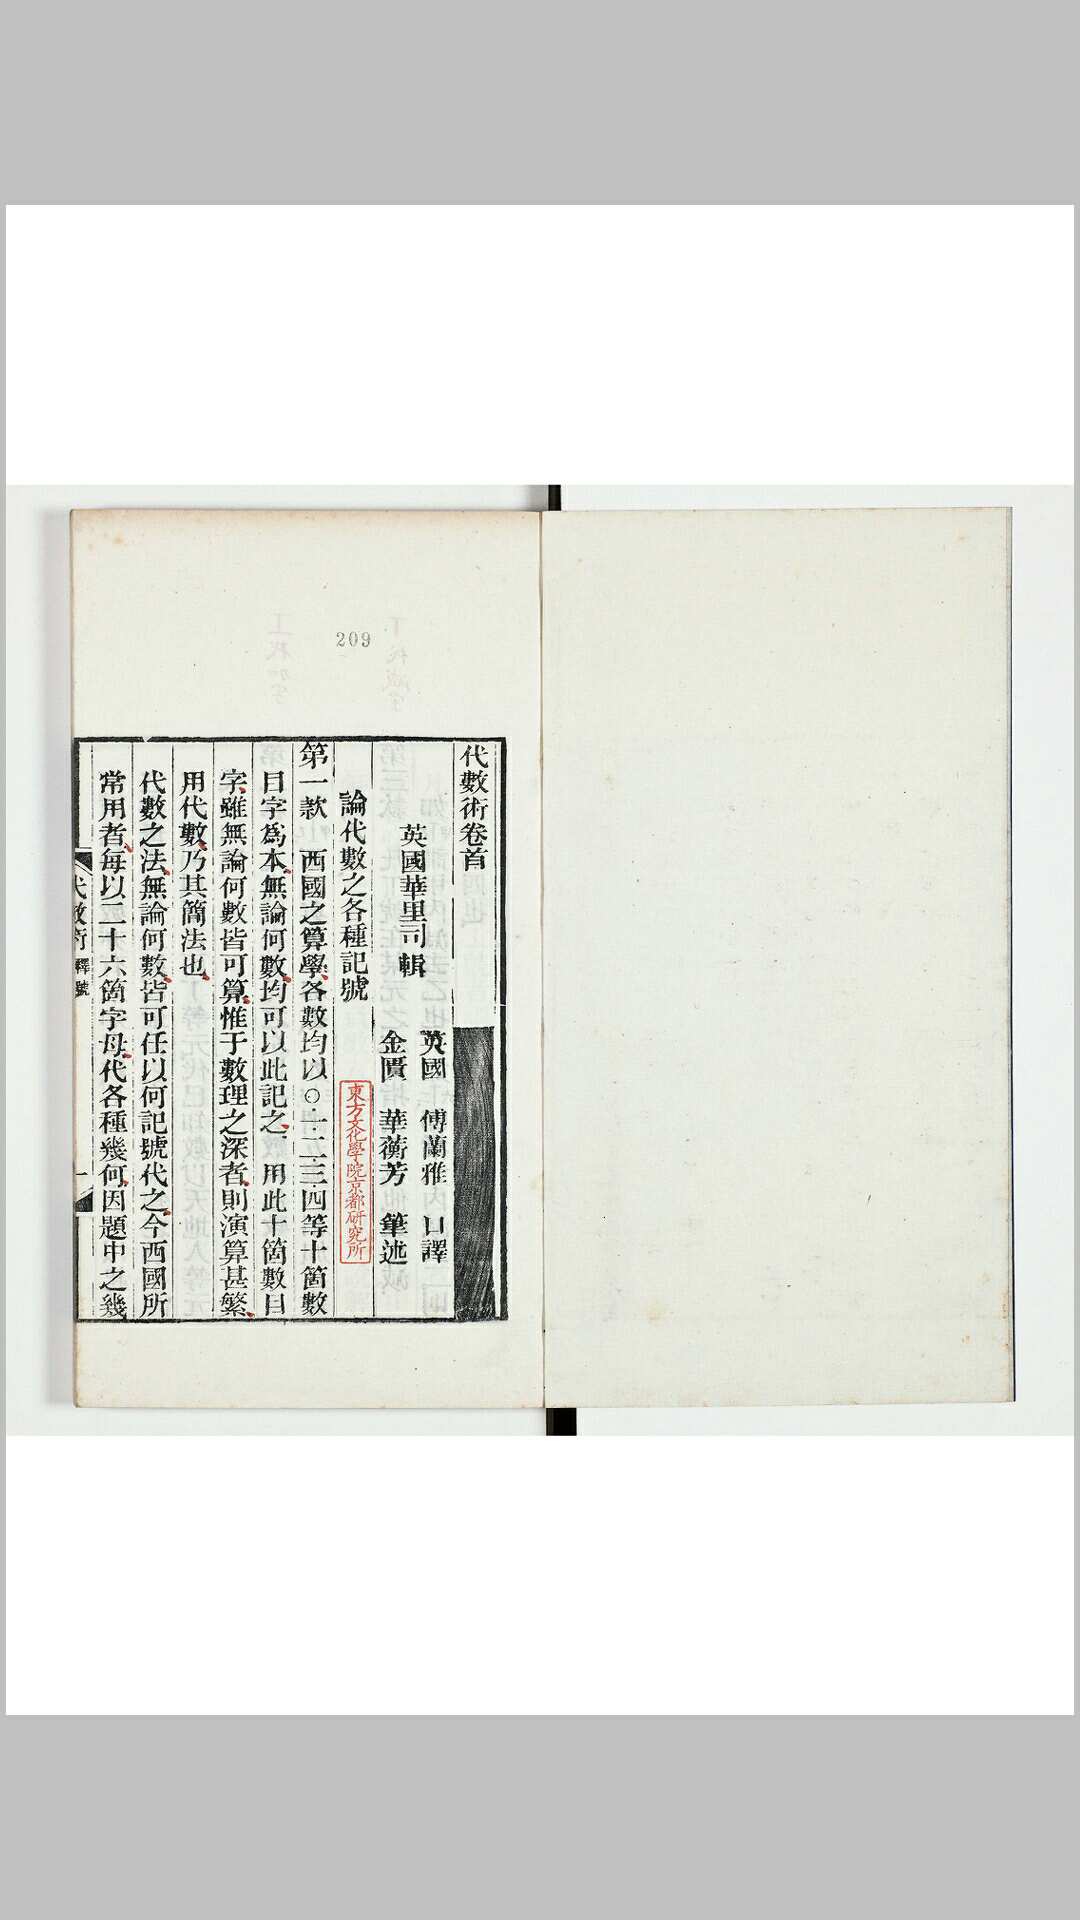 209
代數術卷首
英國華里司輯
英國 傅蘭雅 口譯
金匱 華蘅芳 筆述
論代數之各種記號
東方文化學院京都研究所
第一款 西國之算學各數均以○一二三四等十箇數
目字為本無論何數均可以此記之用此十箇數目
字雖無論何數皆可算惟于數理之深者則演算甚繁
用代數乃其簡法也
代數之法無論何數皆可任以何記號代之今西國所
常用者每以二十六箇字母代各種幾何因題中之幾
代數術 釋號 一